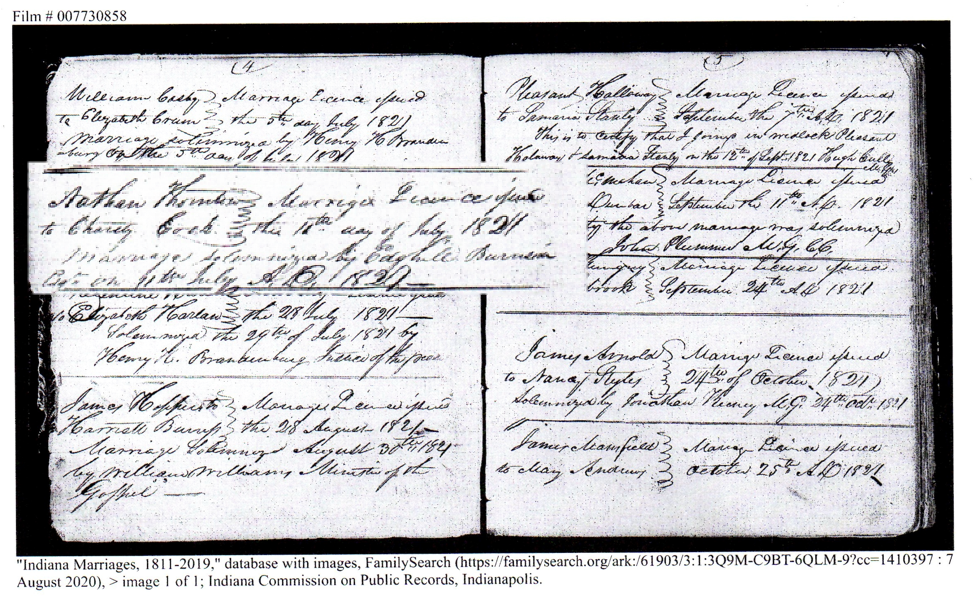 Film # 007730858
4
William Cosby Marriage Licence issued
to Elizabeth the 5th day July 1821
Marriage solemnized by Henry H Branden
burg on the 5th day of 1821
Nathan Thornton Marrige Licence issued
to Charity Cook the 10th day of July 1821
Marriage solemnized by
Esqr on 11th July A.D. 1821
to Elizabeth Harlan the 28 July 1821
Solemnized the 29th of July 1821 by
Henry H. Brandenburg Justice of the peace
James Licence issued
Harriett the 28 August 1821
Marriage Solemnized August 30th 1821
by William Williams Minister of the
Gospel
5
Pleasant Halloway Marriage Licence issued
to Samaria Stanly September the 7th A.D. 1821
this is to certify that I joined in wedlock Pleasant
Holaway & Samaria Stanly on the 12th of Sept. 1821 Hugh
Marriage Licence issued
Dunbar September the 11th A.D. 1821
by the above marriage was solemnized
John Plummer M.G. CC
Marriage Licence issued
brooks September 24th A.D. 1821
James Arnold Marrige Licence issued
to Nancy Styles 24th of October 1821
Solemnized by Jonathan M.G. 24th Octr. 1821
James Mansfield Marriage Licence issued
to May Andrews October 25th A.D. 1821
"Indiana Marriages, 1811-2019," database with images, FamilySearch (https://familysearch.org/ark:/61903/3:1:3Q9M-C9BT-6QLM-9?cc=1410397 : 7
August 2020), > image 1 of 1; Indiana Commission on Public Records, Indianapolis.